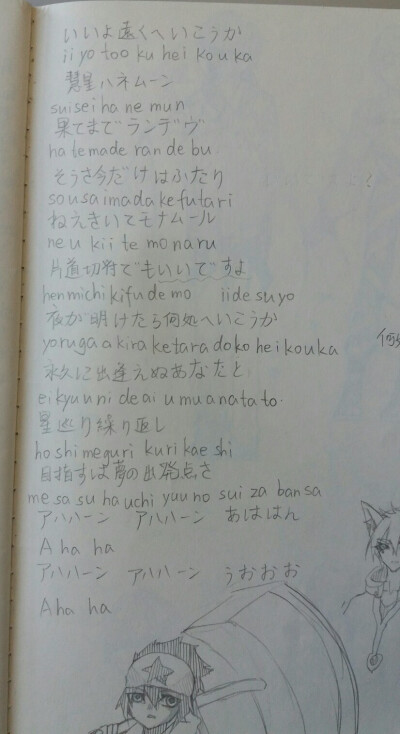 いいよ遠くへいこうか
ii yo too ku hei kou ka
彗星ハネムーン
suisei ha ne mun
果てまでランデヴ
ha te made ran de bu
そうさ今だけはふたり
sou sa ima da ke fu tari
ねえきいてモナムール
ne u kii te mo naru
片道切符でもいいですよ
hen michi kifu de mo iide su yo
夜が明けたら何処へいこうか
yoru ga a kira ke tara do ko hei kou ka
永久に出逢えぬあなたと
ei kyuu ni de ai u mu a na ta to.
星巡り繰り返し
ho shi me guri kuri kae shi
目指すは夢の出発点さ
me sa su ha uchi yuu no sui za ban sa
アハハーン アハハーン あははん
A ha ha
アハハーン アハハーン うおおお
A ha ha
何処